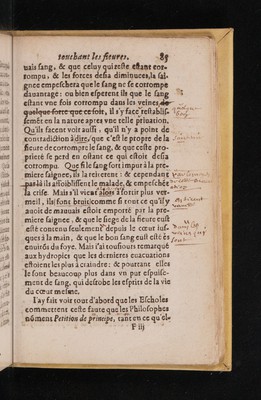 touchant les fieures. 85
uais sang, & que celuy qui reste estant cor-
rompu, & les forces desia diminuees, la sai-
gnee empeschera que le sang ne se corrompe
dauantage: ou bien esperent ils que le sang
estant vne fois corrompu dans les veines, de
quelque sorte que ce soit, il s'y face restablis-
sement en la nature apres vne telle priuation.
Qu'ils facent voir aussi, qu'il n'y a point de
contradiction à dire, que c'est le propre de la
fieure de corrompre le sang, & que ceste pro-
prieté se perd en ostant ce qui estoit desia
corrompu. Que si le sang sort impur à la pre-
miere saignee, ils la reiterent: & cependant
par là ils affoiblissent le malade, & empeschẽt
la crise. Mais s'il vient alors à sortir plus ver-
meil, ils font bruit comme si tout ce qu'il y
auoit de mauuais estoit emporté par la pre-
miere saignee, & que le siege de la fieure eust
esté contenu seulement depuis le cœur ius-
ques à la main, & que le bon sang eust esté es
enuirs du foye. Mais i'ai tousiours remarqué
aux hydropics que les dernieres euacuations
estoient les plus à craindre: & pourtant elles
le sont beaucoup plus dans vn pur espuise-
ment de sang, qui desrobe les esprits de la vie
du cœur mesme.
I'ay fait voir tout d'abord que les Escholes
commettent ceste faute que les Philosophes
nõment Petition de principe, tant en ce qu'el-
F iij